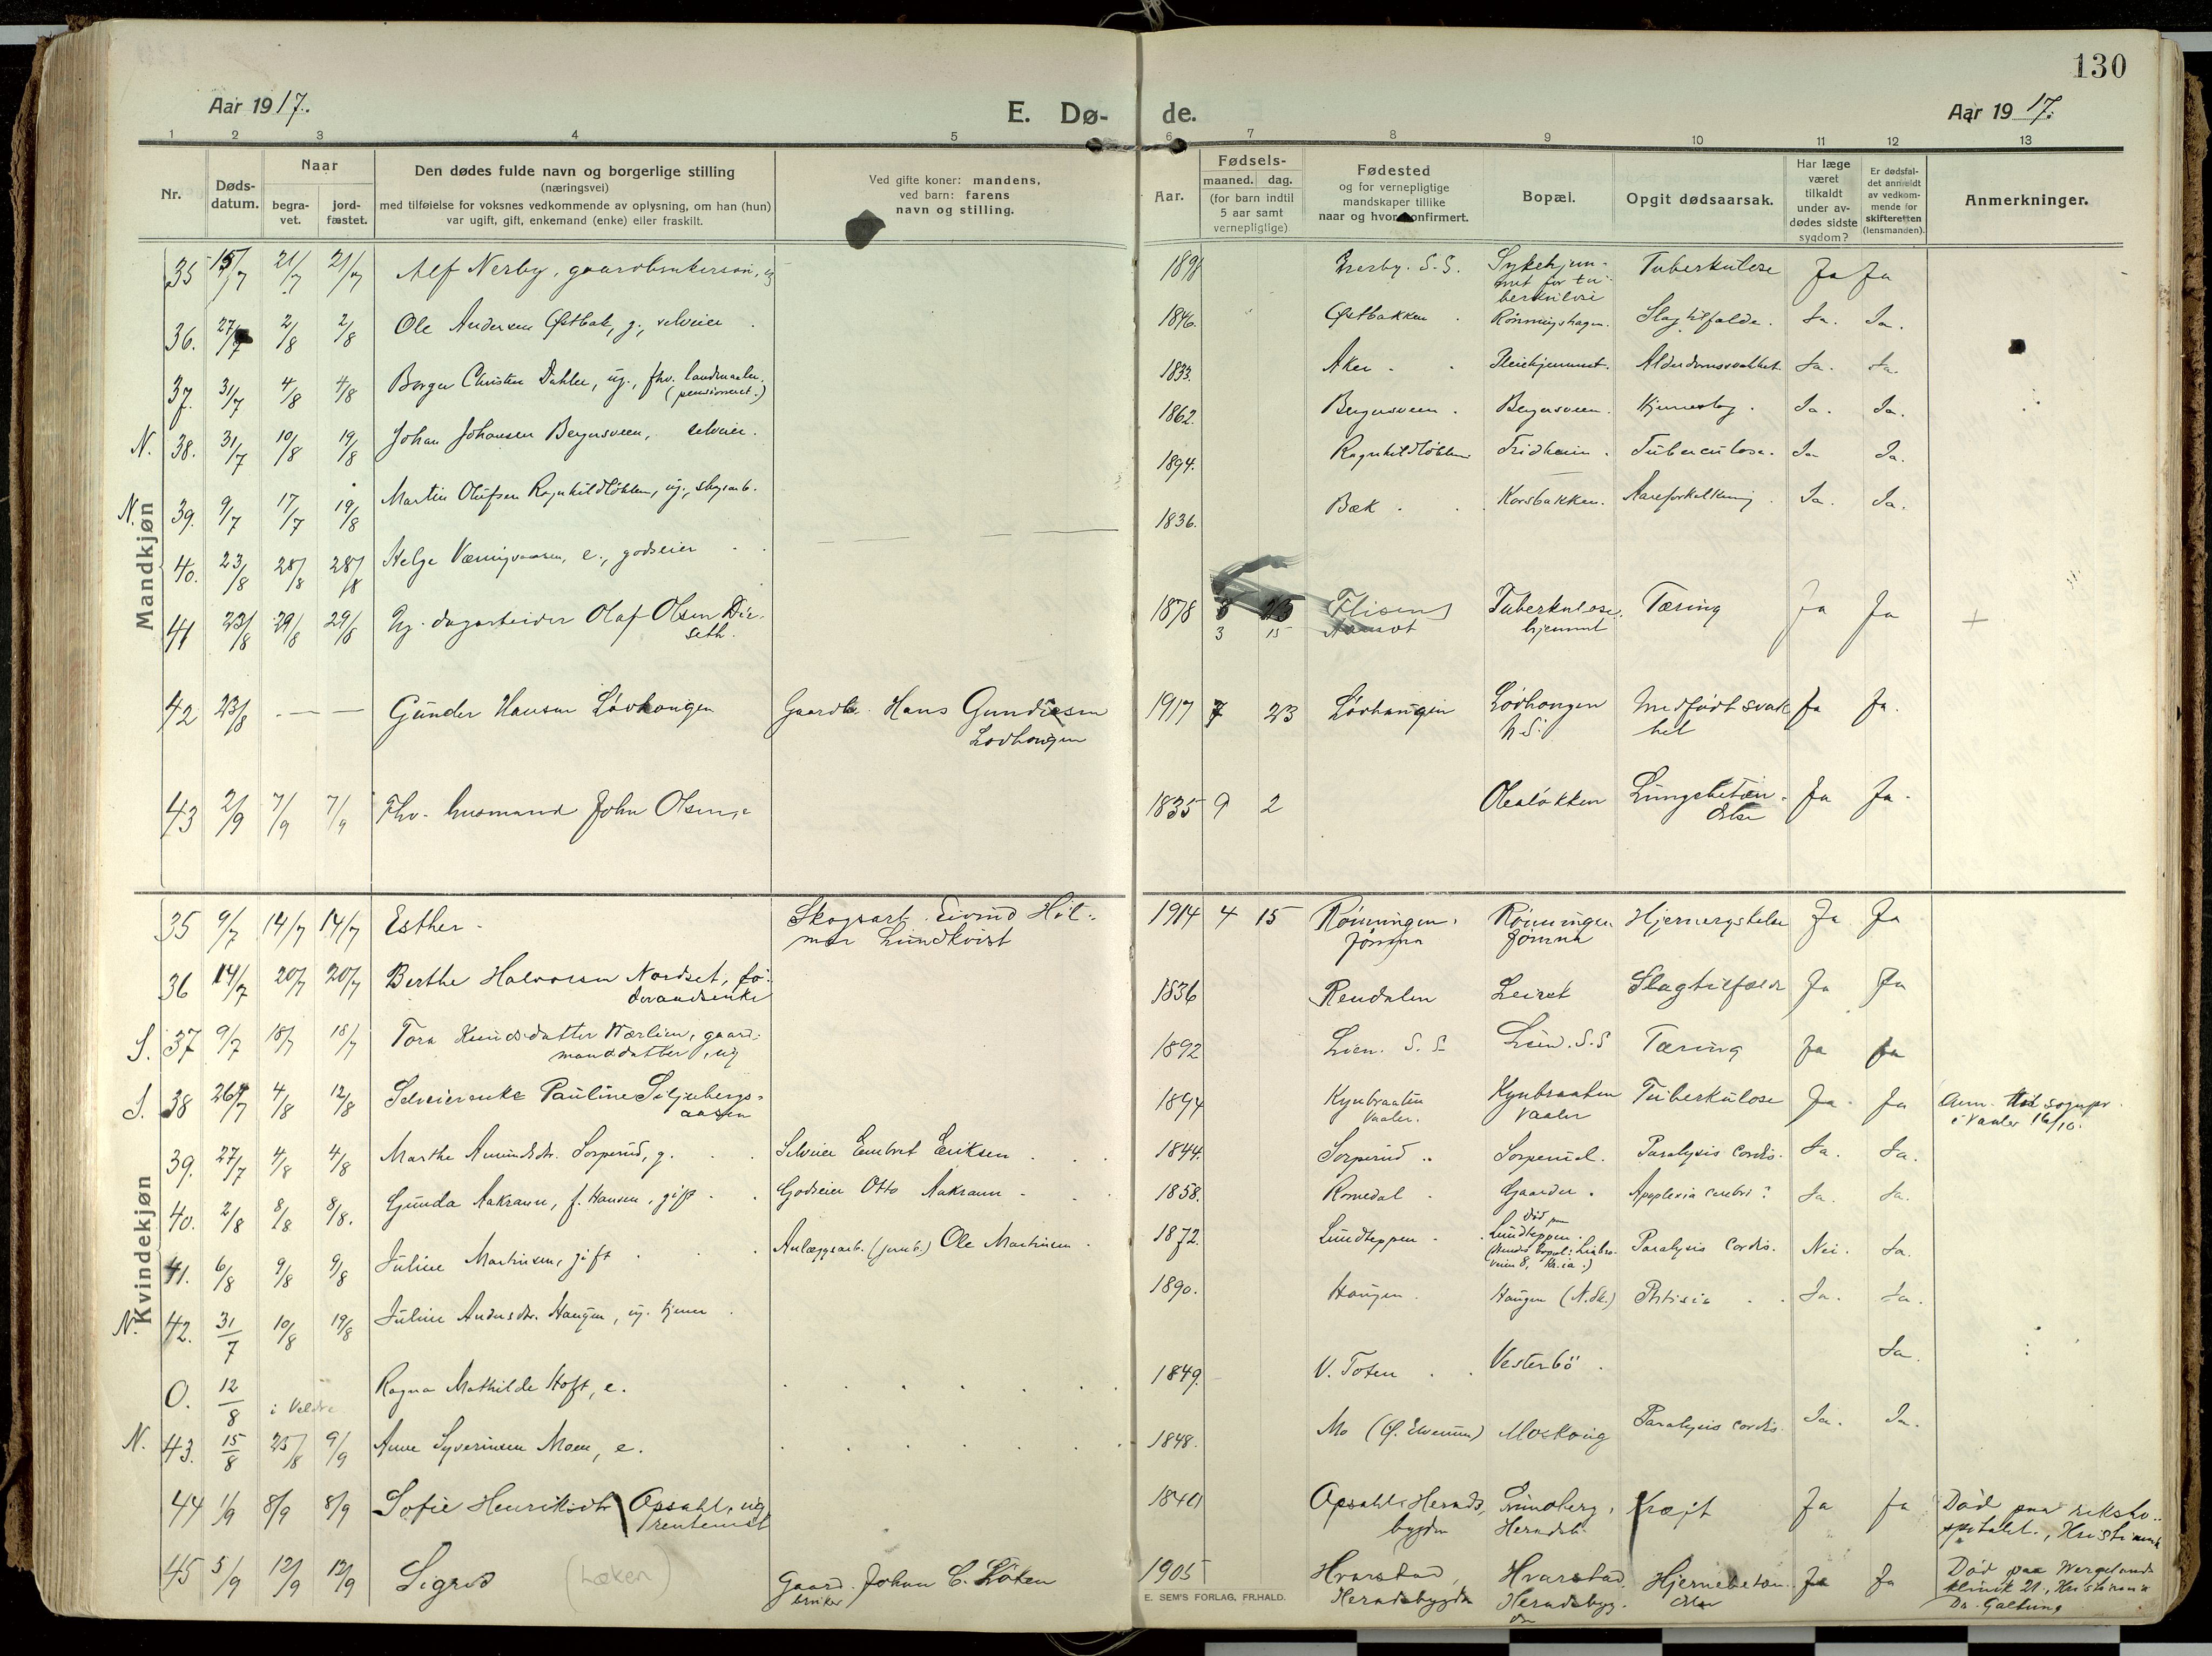 130
Aar 1917.
E. Dø-
de.
Aar 1917.
1 2 3 4 5 6 7 8 9 10 11 12 13
Nr.
Døds-
datum.
Naar
begra-
vet.
jord-
fæstet.
Den dødes fulde navn og borgerlige stilling
(næringsvei)
med tilføielse for voksnes vedkommende av oplysning, om han (hun)
var ugift, gift, enkemand (enke) eller fraskilt.
Ved gifte koner: mandens,
ved barn: farens
navn og stilling.
Aar.
Fødsels-
maaned. dag.
(for barn indtil
5 aar samt
vernepligtige)
Fødested
og for vernepligtige
mandskaper tillike
naar og hvor konfirmert.
Bopæl.
Opgit dødsaarsak.
Har læge
været
tilkaldt
under av-
dødes sidste
sygdom?
Er dødsfal-
det anmeldt
av vedkom-
mende for
skifteretten
(lensmanden).
Anmerkninger.
Mandkjøn
35 15/7 21/7 21/7 Alf Nerby, gaardbrukersøn, ug 1891 Nerby. S.S. Sykehjem- Tuberkulose Ja Ja
met for tu-
berkulose
36. 27/7 2/8 2/8 Ole Andersen Østbak, g., selveier 1846. Østbakken Rønningshagen. Slagtilfælde. Ja. Ja.
37. 31/7 4/8 4/8 Borger Christian Dahler, ug., fhv. landmaaler. 1833. Aker Pleiehjemmet. Alderdomssvakhet. Ja. Ja.
(pensioneret.)
N. 38. 31/7 10/8 19/8 Johan Johansen Bergersveen, selveier. 1862. Bergersveen. Bergersveen. Hjerneslag. Ja. Ja.
N. 39. 9/7 17/7 19/8 Martin Olufsen Ragnhildløkken, ug., skogsarb. 1894. Ragnhildløkken Fridheim. Tuberculose. Ja Ja.
40. 23/8 28/8 28/8 Helge Væringsaasen, e., godseier 1836. Bæk Korsbakken. Aareforkalkning. Ja. Ja.
41 23/8 29/8 29/8 Ug. dagarbeider Olaf Olsen Dise- 1878 8 23 Flisen Tuberkulose- Tæring Ja Ja +
seth. 3 15 Aamot hjemmet
42 23/8 - — — Gunder Hansen Løvhougen Gaardbr. Hans Gundersen 1917 7 23 Løvhaugen Løvhougen Medfødt svak- Ja Ja.
Lovhougen N.S. het
43 2/9 7/9 7/9 Fhv. husmand John Olsen, e 1835 9 2 Olealøkken Lungebetæn- Ja Ja.
delse
Kvindekjøn
35 9/7 14/7 14/7 Esther Skogsarb. Eivind Hil- 1914 4 15 Rønningen. Rønningen Hjernerystelse Ja Ja
mar Lundkvist Jømna Jømna
36 14/7 20/7 20/7 Berthe Halvorsen Nordset, fø- 1836 Rendalen Leiret Slagtilfælde Ja Ja
deraadsenke
S. 37 9/7 18/7 18/7 Tora Knudsdatter Nærlien, gaard- 1892 Lien. S.S. Lien. S.S Tæring Ja Ja
mandsdatter, ug
S. 38 26/7 4/8 12/8 Selveierenke Pauline Siljubergs- 1894 Kynbraaten Kynbraaten Tuberkulose Ja. Ja Anm. til sognepr.
aasen Vaaler. Vaaler i Vaaler 16/10.
39. 27/7 4/8 4/8 Marthe Amundsdtr. Sorperud, g. Selveier Embret Eriksen 1844. Sorperud Sorperud. Paralysis cordis. Ja. Ja.
40. 2/8 8/8 8/8. Gunda Aakrann, f. Hansen, gift Godseier Otto Aakrann 1858. Romedal Gaarder. Apoplexia cerebri? Ja. Ja.
41. 6/8 9/8 9/8 Juline Martinsen, gift Anlægsarb. (jernb.) Ole Martinsen 1872. Lundteppen Død paa Lundteppen. Paralysis cordis. Nei. Ja.
N. 42. 31/7 10/8 19/8 Juline Andersdtr. Haugen, ug. tjener 1890. Haugen. Haugen (N.Sk.) Phtisis Ja. Ja.
0. 12/8 i Veldre Ragna Mathilde Hoft, e. 1849. V. Toten Vesterbö Ja.
N. 43. 15/8 25/8 9/9 Anne Syverinsen Moen, e. 1848. Mo (Ø. Elverum) Moskoug Paralysis cordis. Ja. Ja.
44 1/9 8/9 8/9 Sofie Henriksdtr Opsahl, ug 1840 Opsahl, Herads- Grindberg, Kræft Ja Ja Død paa riksho-
rentenist bygden Heradsb. spitalet, Kristiania
45 5/9 12/9 12/9 Sigrid (Løken) Gaard- Johan C. Løken 1905 Hvarstad, Hvarstad, Hjernebetæn- Ja Ja Død paa Wergelands
bruker Heradsbygden Heradsbyg- delse klinik 21, Kristiania
den Dr. Galtung
E. SEM'S FORLAG, FR.HALD.